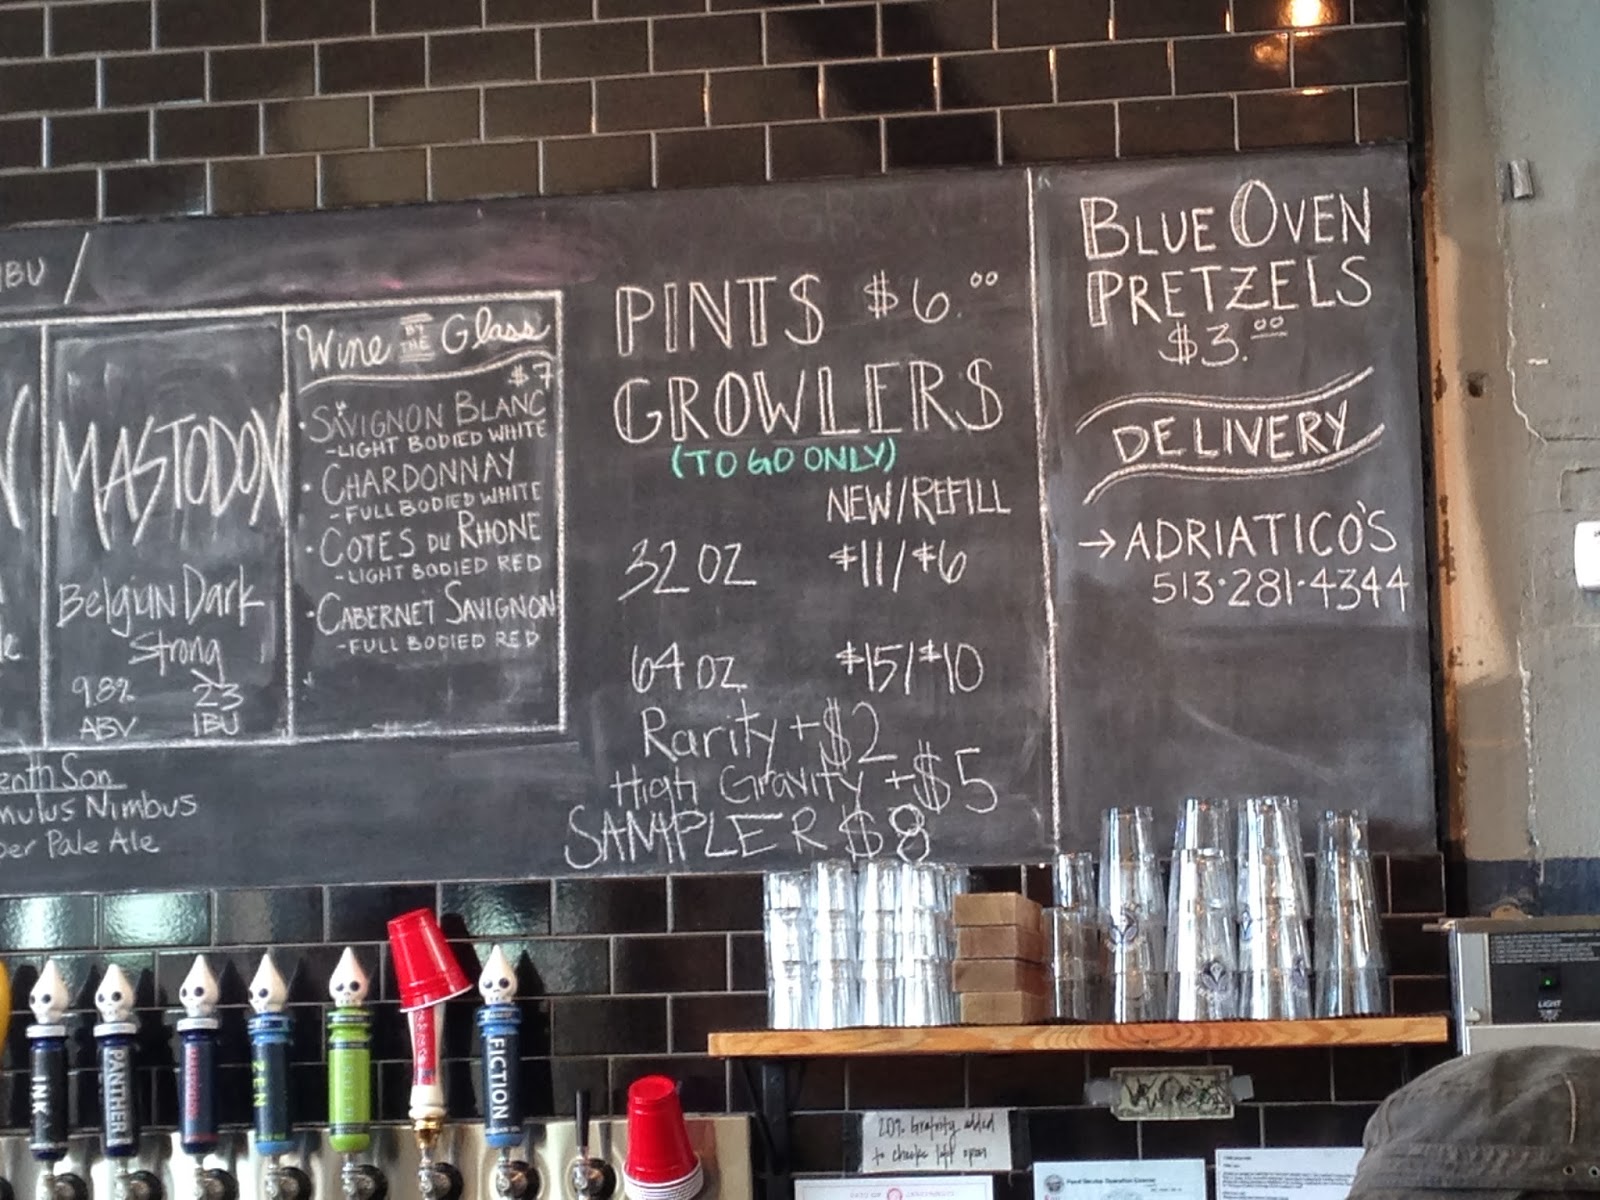 IBU /
MASTODON
Belgian Dark
Strong
9.8% 23
ABV IBU
Wine BY THE Glass
$7
• SAVIGNON BLANC
- LIGHT BODIED WHITE
• CHARDONNAY
- FULL BODIED WHITE
• COTES DU RHONE
- LIGHT BODIED RED
• CABERNET SAVIGNON
- FULL BODIED RED
enth Son
mulus Nimbus
per Pale Ale
PINTS $6.00
GROWLERS
(TO GO ONLY)
NEW/REFILL
32 OZ $11/$6
64 OZ $15/$10
Rarity +$2
High Gravity +$5
SAMPLER $8
BLUE OVEN
PRETZELS
$3.00
DELIVERY
→ ADRIATICO'S
513·281·4344
INK
PANTHER
ZEN
FICTION
LIGHT
20% Gratuity added
to checks left open